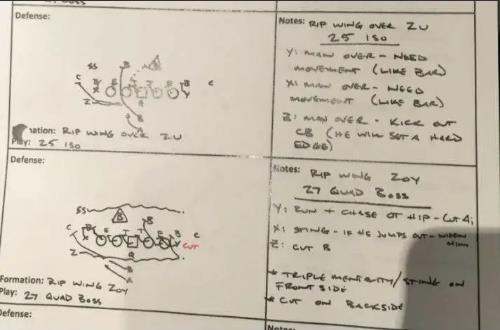 Defense:
SS
C
B
E
T
T
E
B
C
Z
Q
B
B
mation: RIP WING OVER ZU
Play: 25 ISO
Notes: RIP WING OVER ZU
25 ISO
Y: MAN OVER - NEED
MOVEMENT (LIKE BAR)
X: MAN OVER - NEED
MOVEMENT (LIKE BAR)
Z: MAN OVER - KICK OUT
CB (HE WILL SET A HARD
EDGE)
Defense:
B
B
C
C
CUT
Z
Q
B
Formation: RIP WING ZOY
Play: 27 QUAD BOSS
Notes: RIP WING ZOY
27 QUAD BOSS
Y: RUN + CHASE OT HIP - CUT
X: STING - IF HE JUMPS OUT - WIDEN
Z: CUT B
* TRIPLE MENTALITY/STING ON
FRONTSIDE
* CUT ON BACKSIDE
Defense:
Notes: